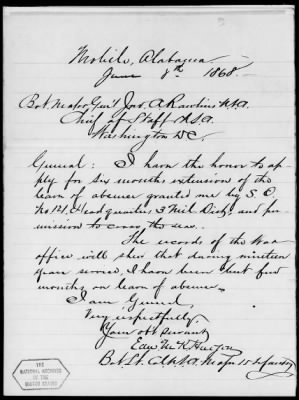 Mobile, Alabama
June 8th 1868.
Bvt. Major Gen'l Jno. A. Rawlins U.S.A.
Chief of Staff U.S.A.
Washington D.C.
General: I have the honor to ap-
ply for six months extension of the
leave of absence granted me by S. O.
No 121, Head quarters 3 Mil. Dist. and per-
mission to cross the sea.
The records of the War
office will show that during nineteen
years service, I have been but few
months on leave of absence.
I am General,
Very respectfully
Your obt servant
Edw. McK Hudson
Bvt. Lt. Col. U.S.A. Major 15 Infantry
THE
NATIONAL ARCHIVES
OF THE
UNITED STATES